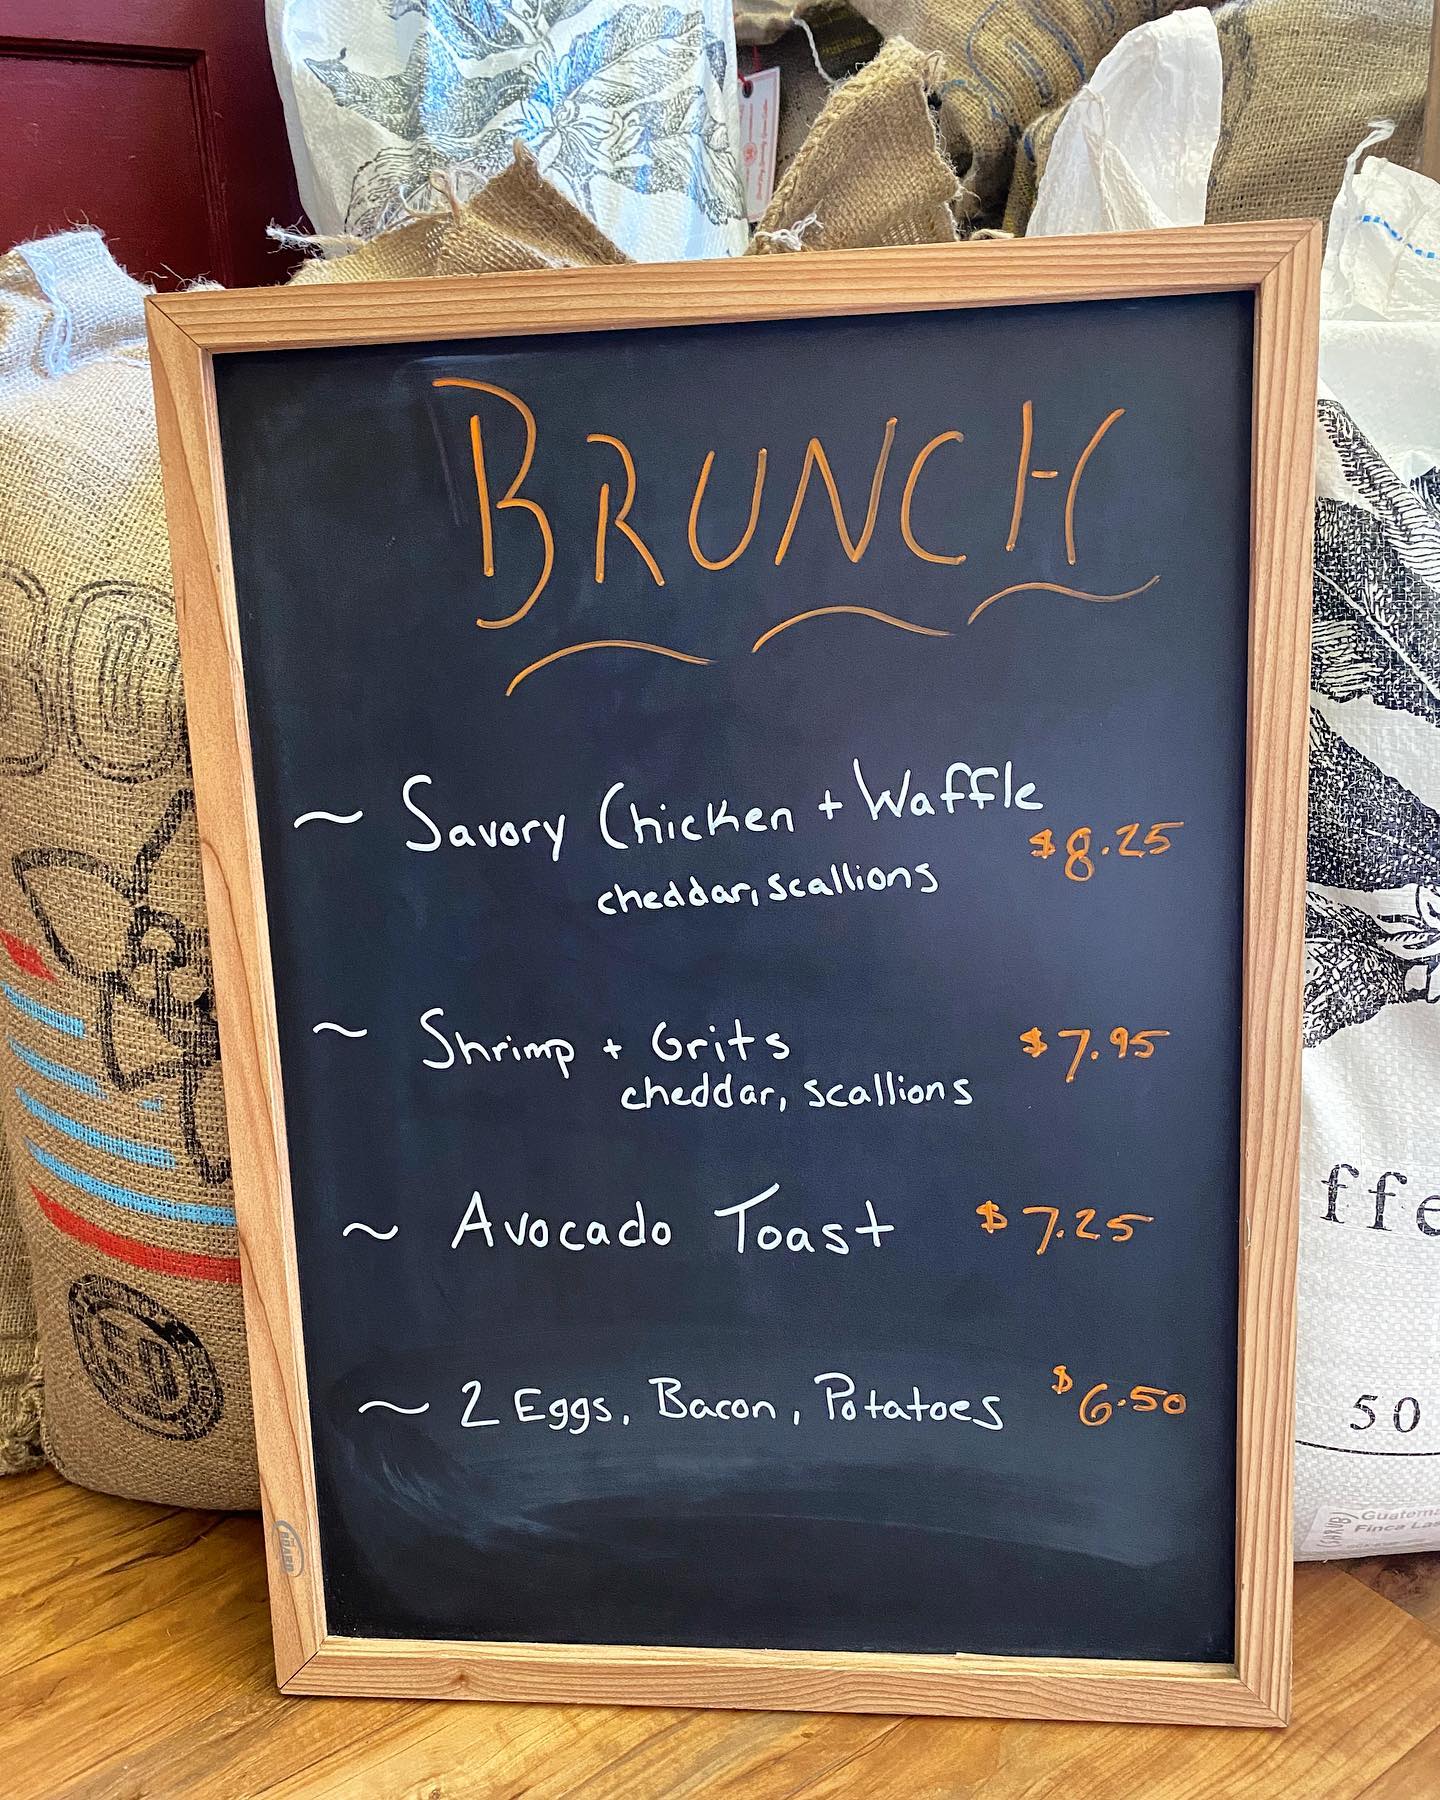 BRUNCH
~ Savory Chicken + Waffle
$8.25
cheddar, scallions
~ Shrimp + Grits $7.95
cheddar, scallions
~ Avocado Toast $7.25
~ 2 Eggs, Bacon, Potatoes $6.50
ffe
50
Guatema
Finca Las